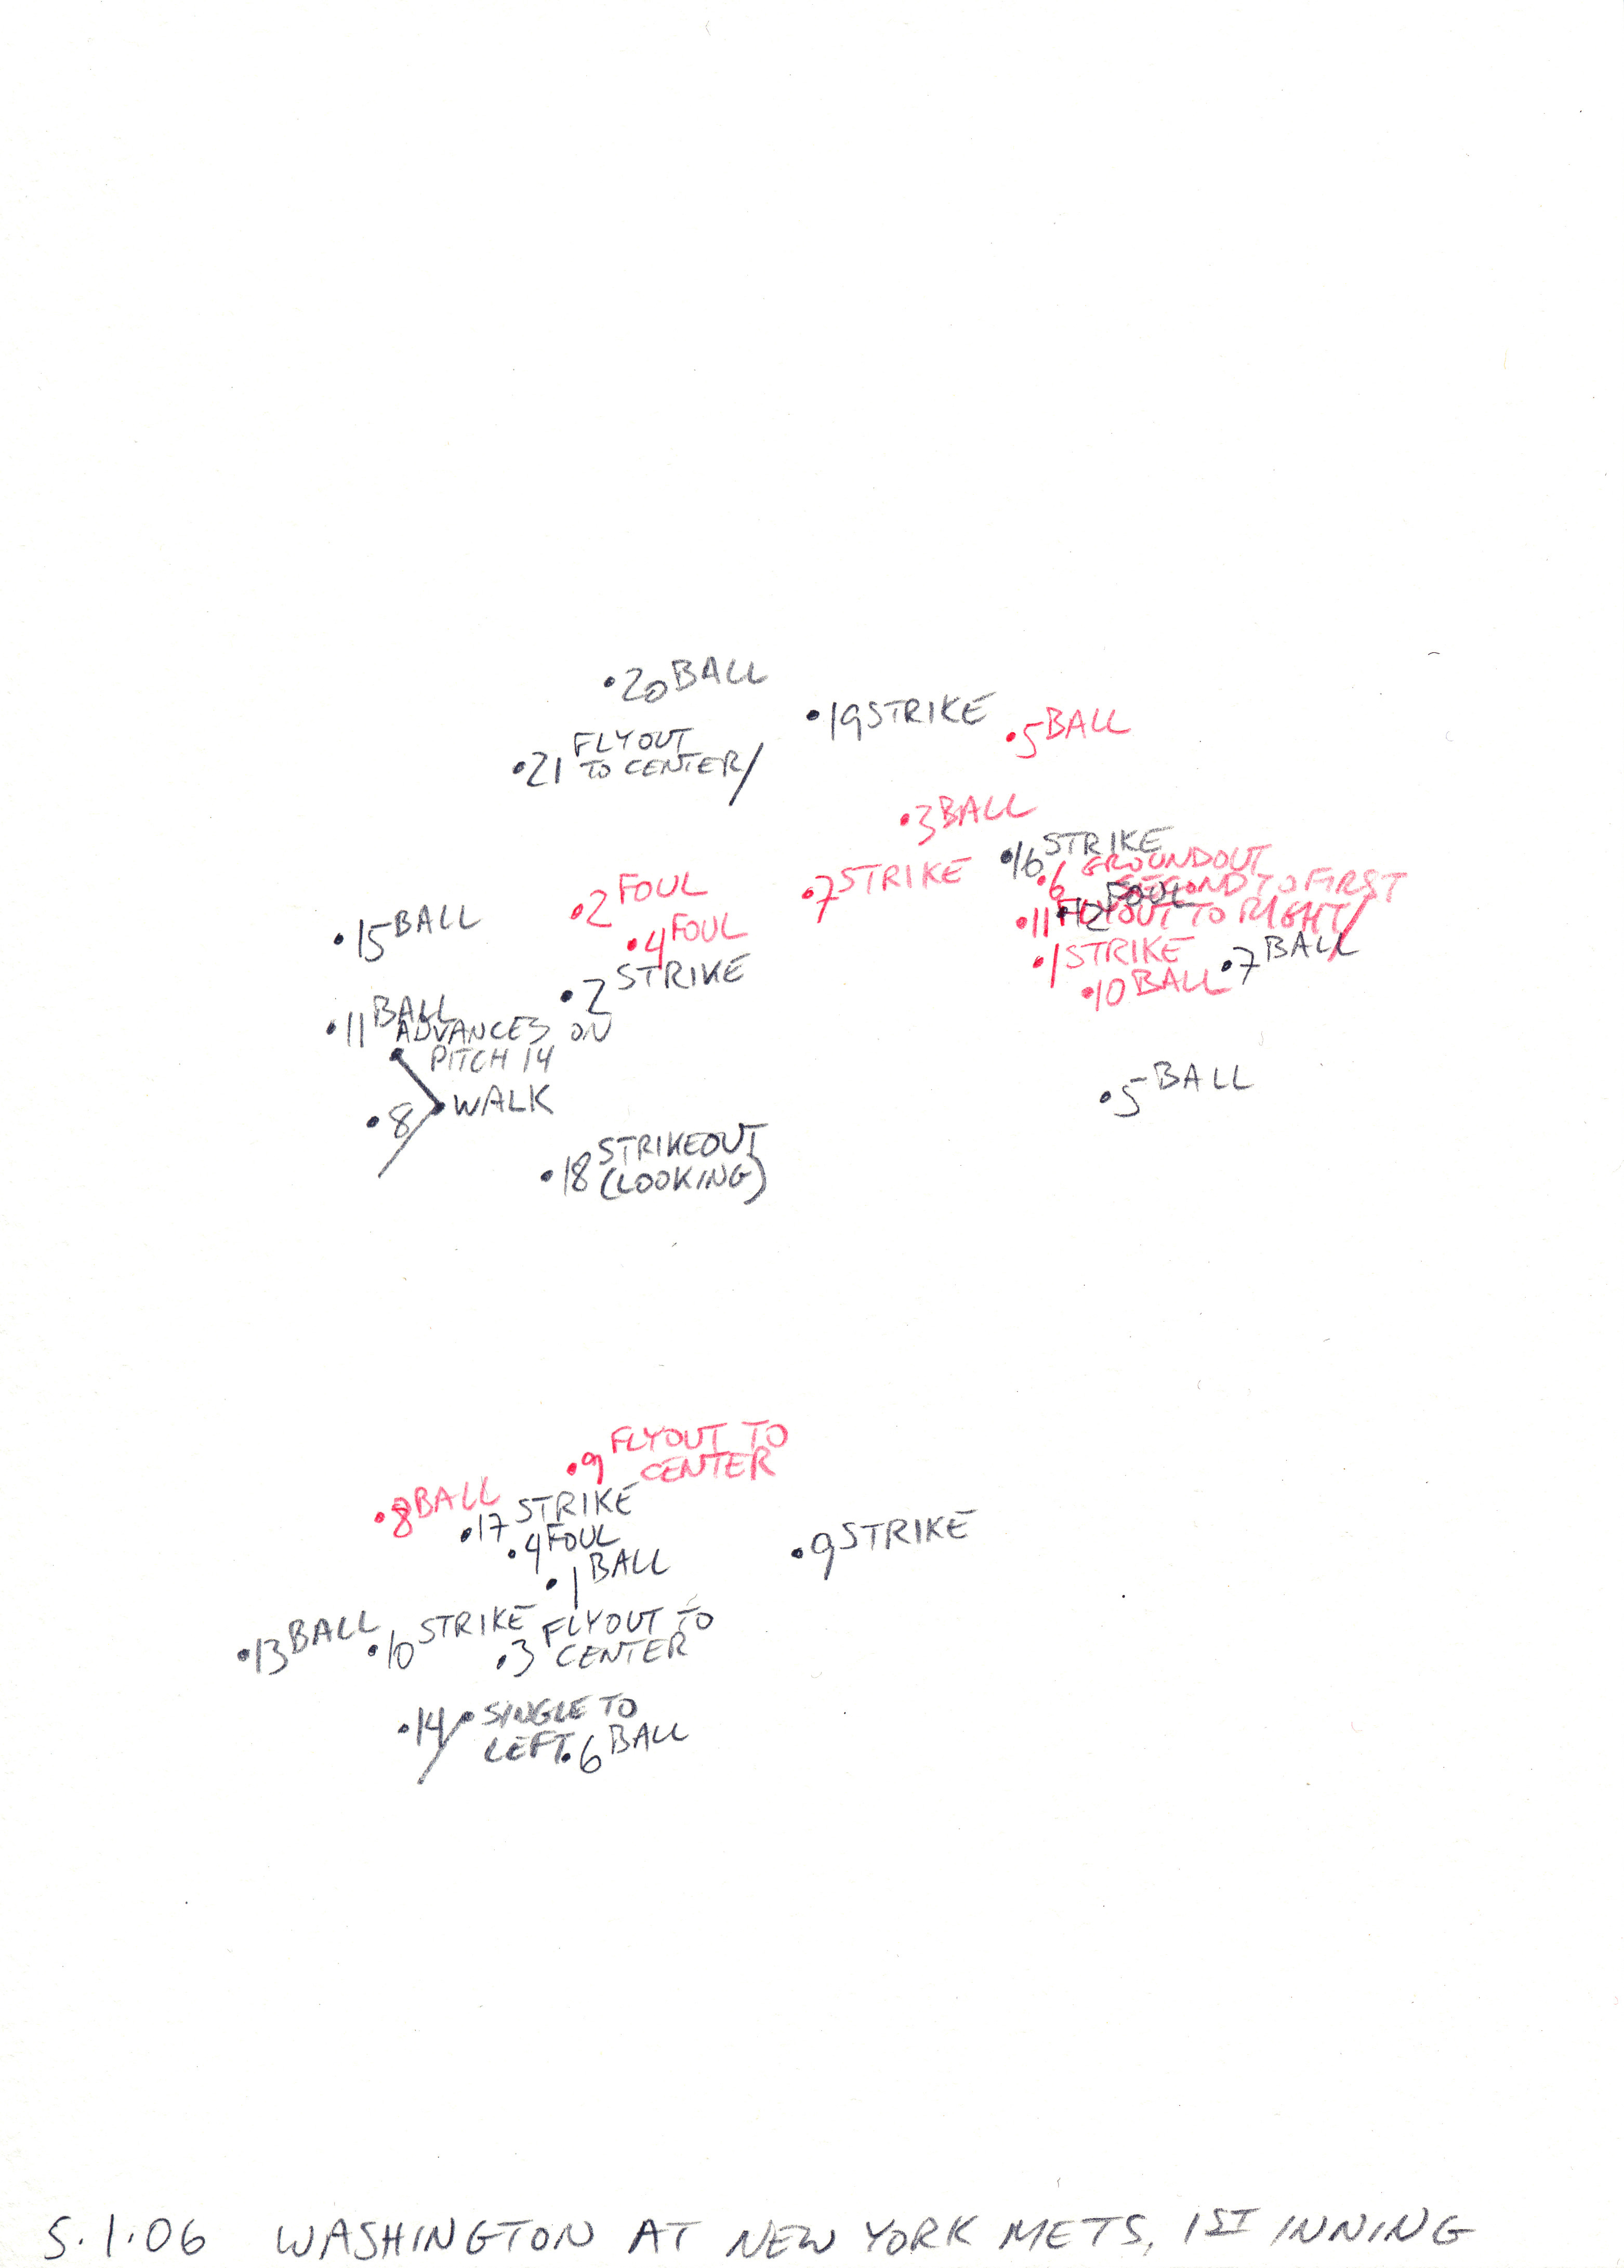 20 BALL
19 STRIKE
5 BALL
21 FLYOUT
TO CENTER
3 BALL
16 STRIKE
6 GROUNDOUT
SECOND TO FIRST
7 STRIKE
2 FOUL
12 FOUL
11 FLYOUT TO RIGHT
15 BALL
4 FOUL
1 STRIKE
7 BALL
2 STRIKE
10 BALL
11 BALL
ADVANCES ON
PITCH 14
5 BALL
8 WALK
18 STRIKEOUT
(LOOKING)
9 FLYOUT TO
CENTER
8 BALL
17 STRIKE
4 FOUL
9 STRIKE
1 BALL
13 BALL
10 STRIKE
3 FLYOUT TO
CENTER
14 SINGLE TO
LEFT
6 BALL
5.1.06 WASHINGTON AT NEW YORK METS, 1ST INNING